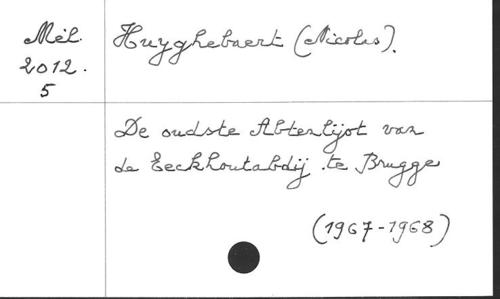 Mél.
2012.
5
Huyghebaert (Nicolas).
De oudste Abtenlijst van
de Eeckhoutabdij te Brugge
(1967-1968)